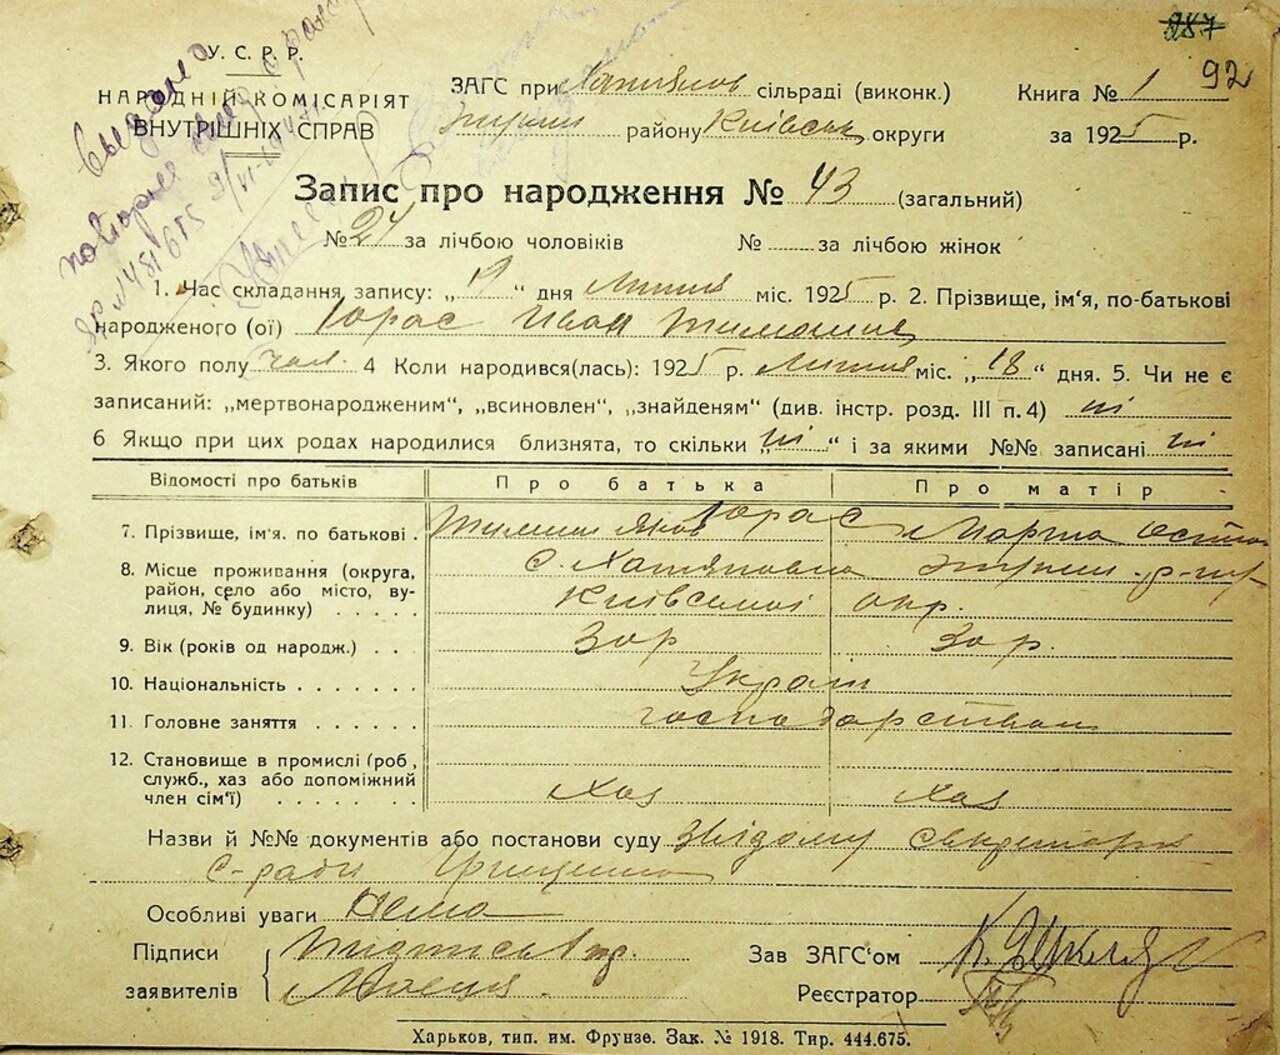 287
92
У. С. Р. Р.
НАРОДНІЙ КОМІСАРІЯТ
ВНУТРІШНІХ СПРАВ
ЗАГС при сільраді (виконк.)
району Київськ округи
Книга № 1
за 1925 р.
Выдано
повторное
№ 481675
Запис про народження № 43 (загальний)
№ 24 за лічбою чоловіків № за лічбою жінок
1. Час складання запису: „ “ дня Липня міс. 1925 р. 2. Прізвище, ім'я, по-батькові
народженого (ої) Юрас Иван
3. Якого полу чол. 4 Коли народився(лась): 1925 р. Липня міс. „18“ дня. 5. Чи не є
записаний: „мертвонародженим“, „всиновлен“, „знайденям“ (див. інстр. розд. III п. 4) ні
6 Якщо при цих родах народилися близнята, то скільки „ні“ і за якими №№ записані ні
Відомості про батьків Про батька Про матір
7. Прізвище, ім'я. по батькові . Юрас Марта
8. Місце проживання (округа, с. Хатяновка
район, село або місто, ву-
лиця, № будинку) . . . . . Київської окр.
9. Вік (років од народж.) . . . 30 р 30 р.
10. Національність . . . . . . . Україн
11. Головне заняття . . . . . . господарством
12. Становище в промислі (роб,
служб., хаз або допоміжний
член сім'ї) . . . . . . . Хаз Хаз
Назви й №№ документів або постанови суду Звідому секретаря
с-ради
Особливі уваги Нема
Підписи
заявителів
Зав ЗАГС'ом
Реєстратор
Харьков, тип. им. Фрунзе. Зак. № 1918. Тир. 444.675.